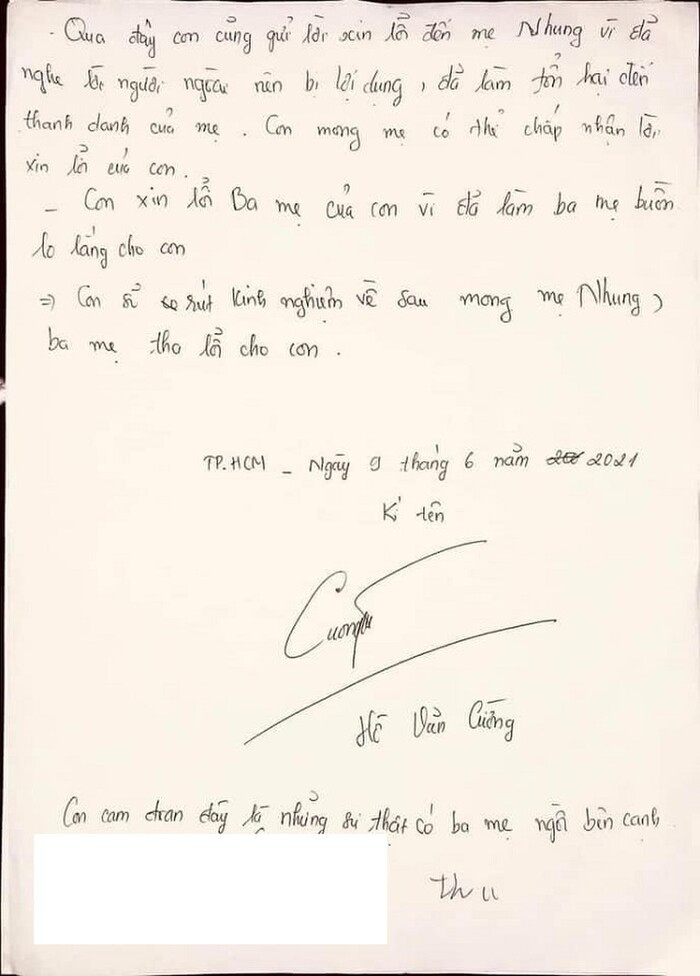 - Qua đây con củng gửi lời xin lổi đến mẹ Nhung vì đả
nghe lời người ngoài nên bị lợi dụng, đả làm tổn hại đến
thanh danh của mẹ. Con mong mẹ có thể chấp nhận lời
xin lổi của con.
- Con xin lổi Ba mẹ của con vì đả làm ba mẹ buồn
lo lắng cho con
=> Con sẻ rút kinh nghiệm về sau mong mẹ Nhung,
ba mẹ tha lổi cho con.
TP.HCM - Ngày 9 tháng 6 năm 2021
Kí tên
Hồ Văn Cường
Con cam đoan đây là những sự thật có ba mẹ ngồi bên cạnh
thu